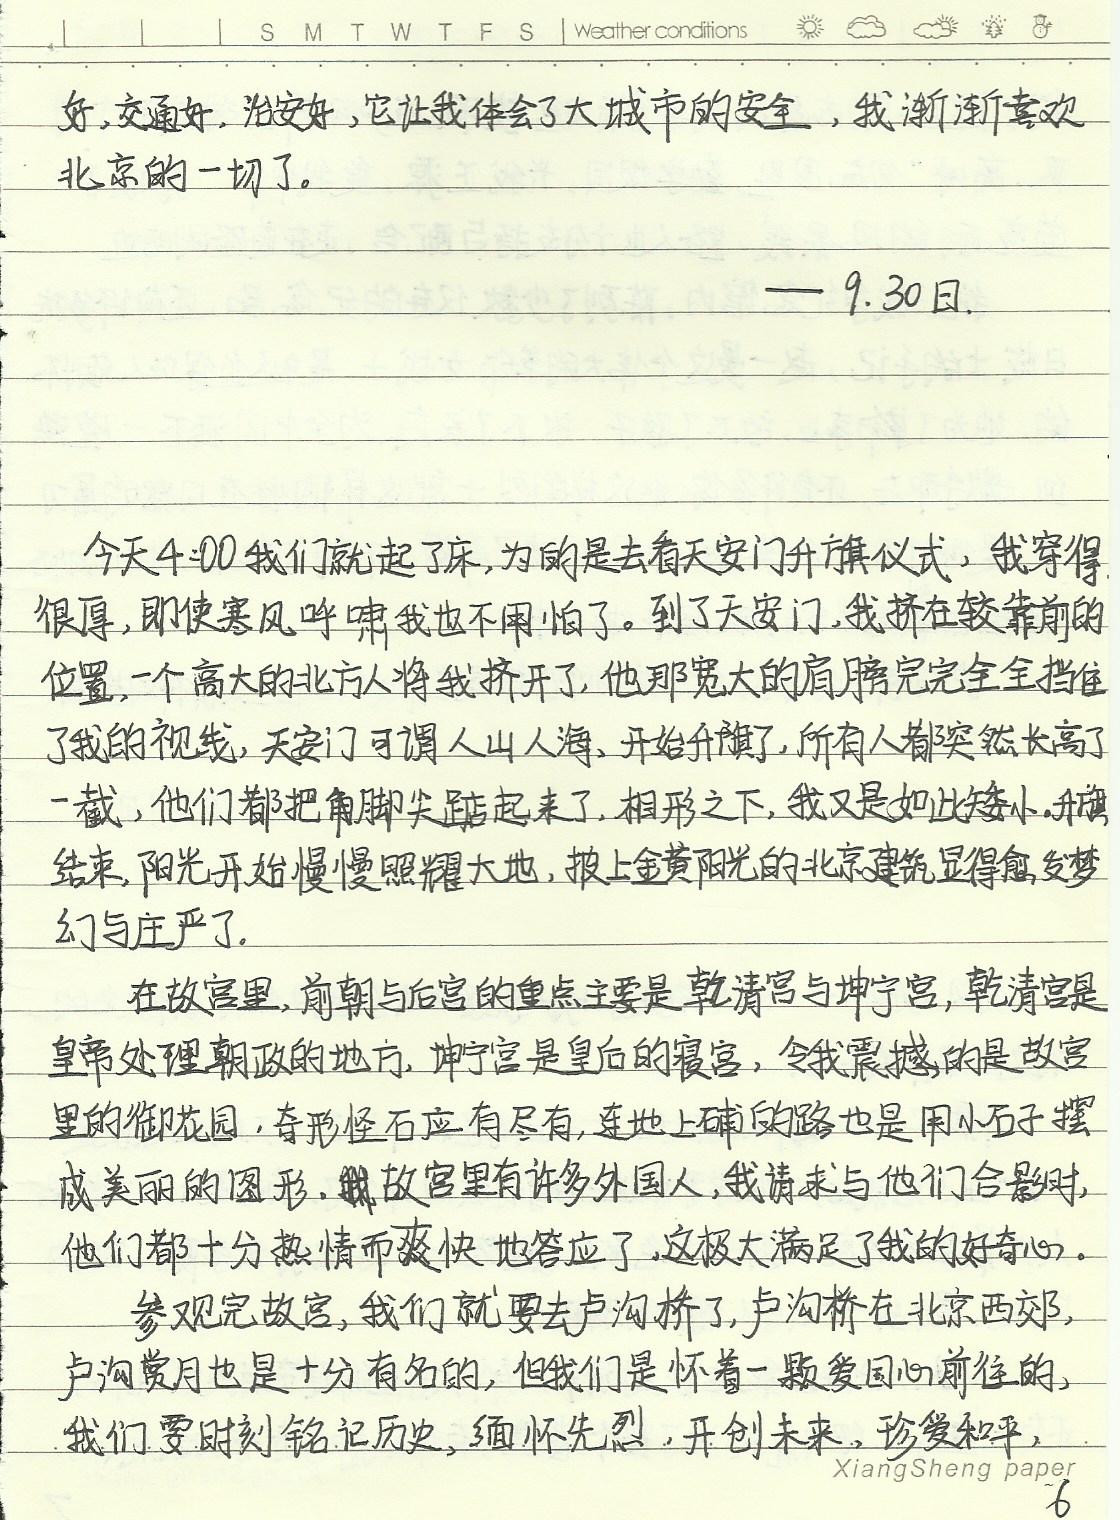 S M T W T F S Weather conditions
好,交通好,治安好,它让我体会了大城市的安全,我渐渐喜欢
北京的一切了。
— 9.30日.
今天4:00我们就起了床,为的是去看天安门升旗仪式,我穿得
很厚,即使寒风呼啸我也不用怕了。到了天安门,我挤在较靠前的
位置,一个高大的北方人将我挤开了,他那宽大的肩膀完完全全挡住
了我的视线,天安门可谓人山人海、开始升旗了,所有人都突然长高了
一截,他们都把角脚尖踮起来了,相形之下,我又是如此矮小.升旗
结束,阳光开始慢慢照耀大地,披上金黄阳光的北京建筑显得愈发梦
幻与庄严了.
在故宫里,前朝与后宫的重点主要是乾清宫与坤宁宫,乾清宫是
皇帝处理朝政的地方,坤宁宫是皇后的寝宫,令我震撼的是故宫
里的御花园,奇形怪石应有尽有,连地上铺的路也是用小石子摆
成美丽的图形.故宫里有许多外国人,我请求与他们合影时,
他们都十分热情而爽快地答应了,这极大满足了我的好奇心.
参观完故宫,我们就要去卢沟桥了,卢沟桥在北京西郊,
卢沟赏月也是十分有名的,但我们是怀着一颗爱国心前往的,
我们要时刻铭记历史,缅怀先烈,开创未来、珍爱和平,
XiangSheng paper
6